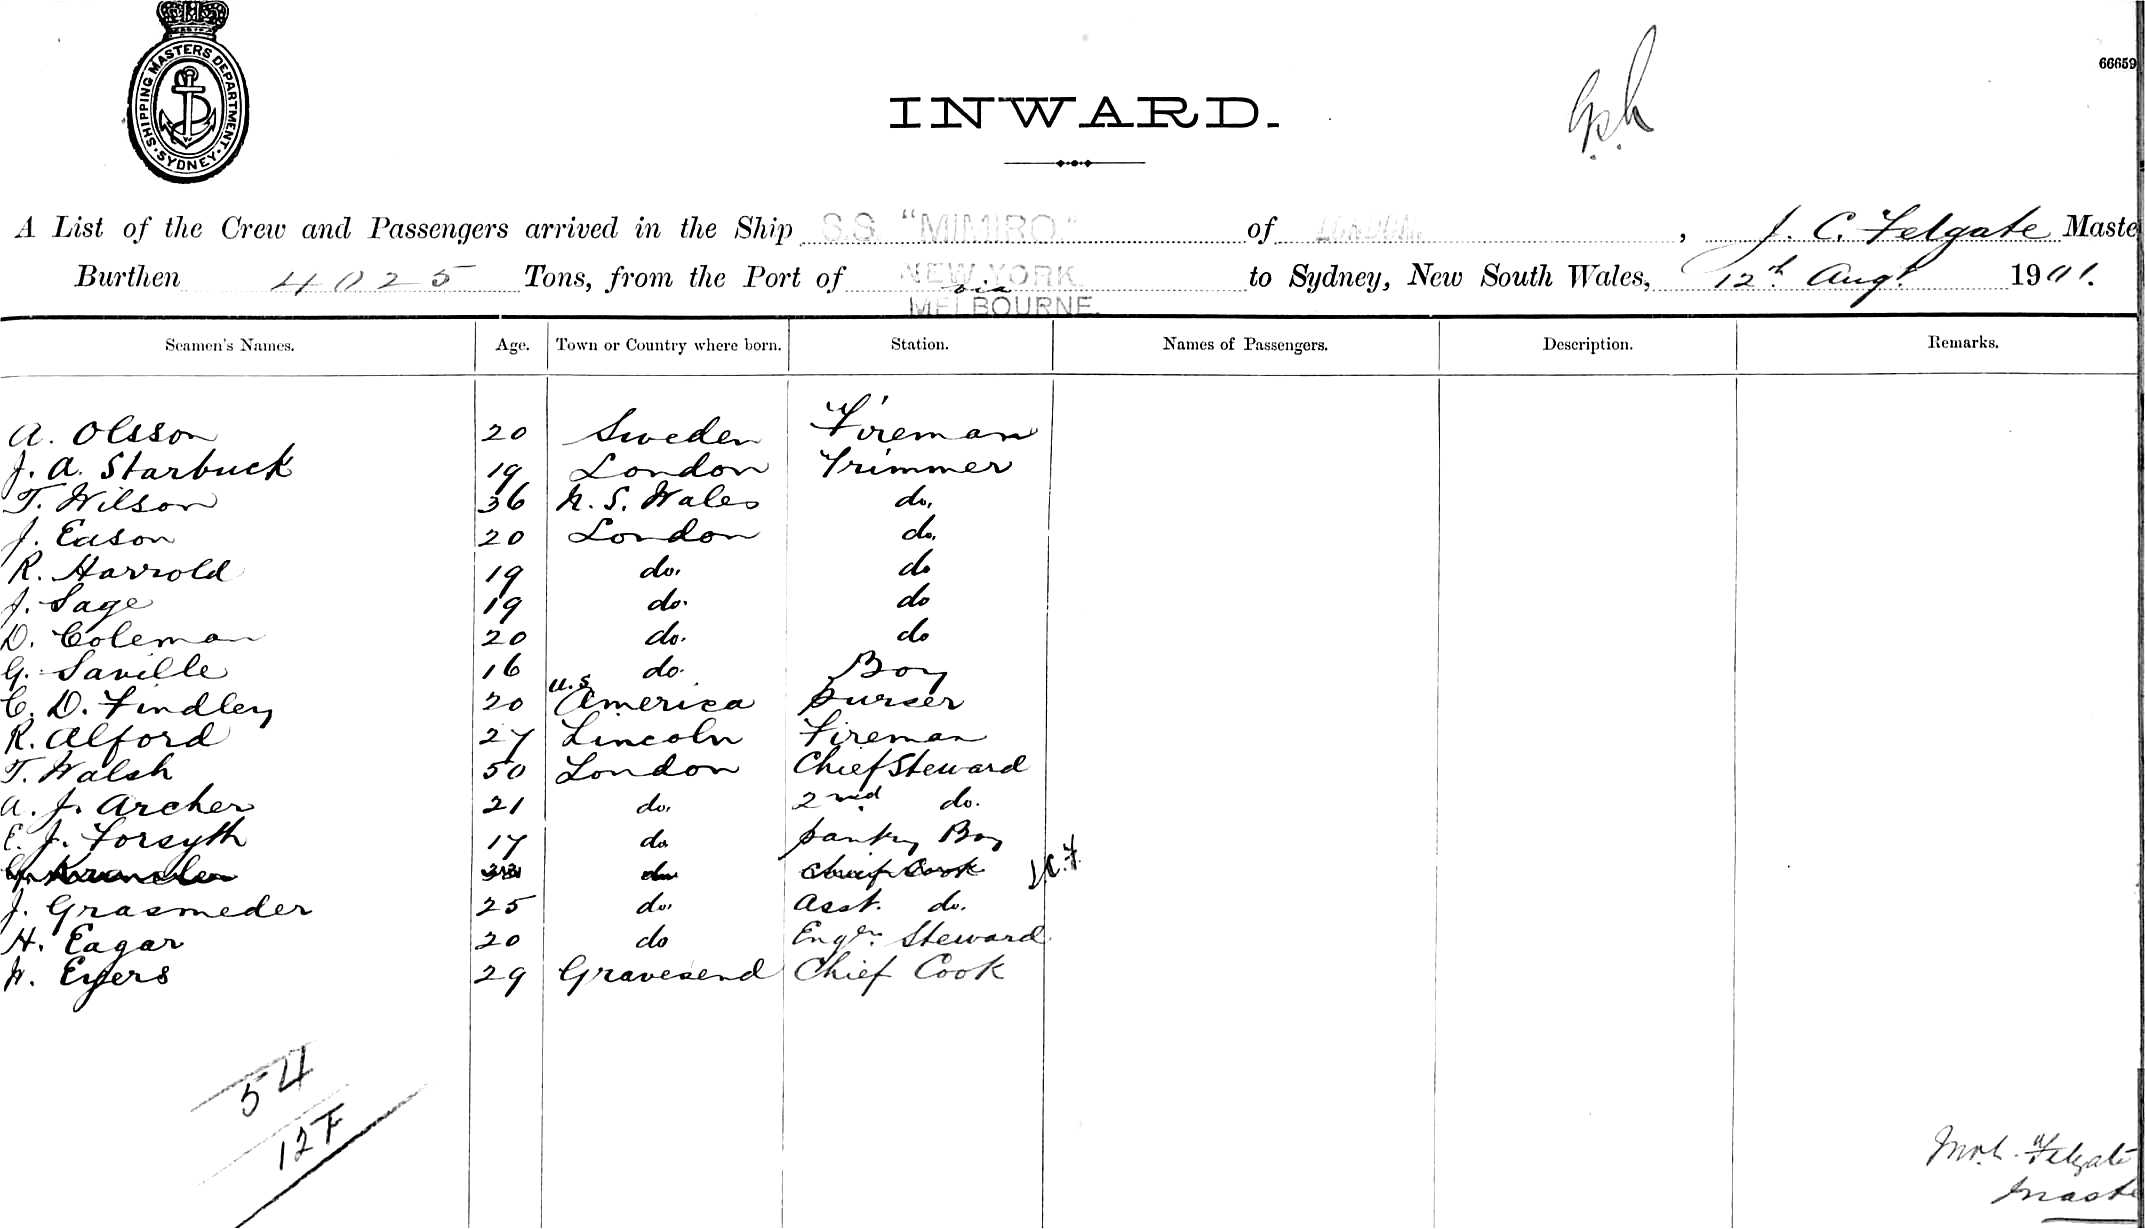 SHIPPING MASTERS DEPARTMENT. SYDNEY
66659
INWARD.
A List of the Crew and Passengers arrived in the Ship S.S. "MIMIRO." of , J. C. Felgate Maste
Burthen 4025 Tons, from the Port of NEW YORK via MELBOURNE. to Sydney, New South Wales, 12th Augt. 1901.
Seamen's Names. Age. Town or Country where born. Station. Names of Passengers. Description. Remarks.
A. Olsson 20 Sweden Fireman
J. A. Starbuck 19 London Trimmer
T. Wilson 36 N. S. Wales do.
J. Eason 20 London do.
R. Harrold 19 do. do
J. Sage 19 do. do
D. Coleman 20 do. do
G. Saville 16 do. Boy
C. D. Findley 20 U.S America Purser
R. Alford 27 Lincoln Fireman
T. Walsh 50 London Chief Steward
A. J. Archer 21 do. 2nd do.
E. J. Forsyth 17 do Pantry Boy
33 do Chief Cook J.C.F.
J. Grasmeder 25 do. Asst. do.
H. Eagar 20 do Engrs. Steward
W. Eyers 29 Gravesend Chief Cook
54
127
Felgate
Maste